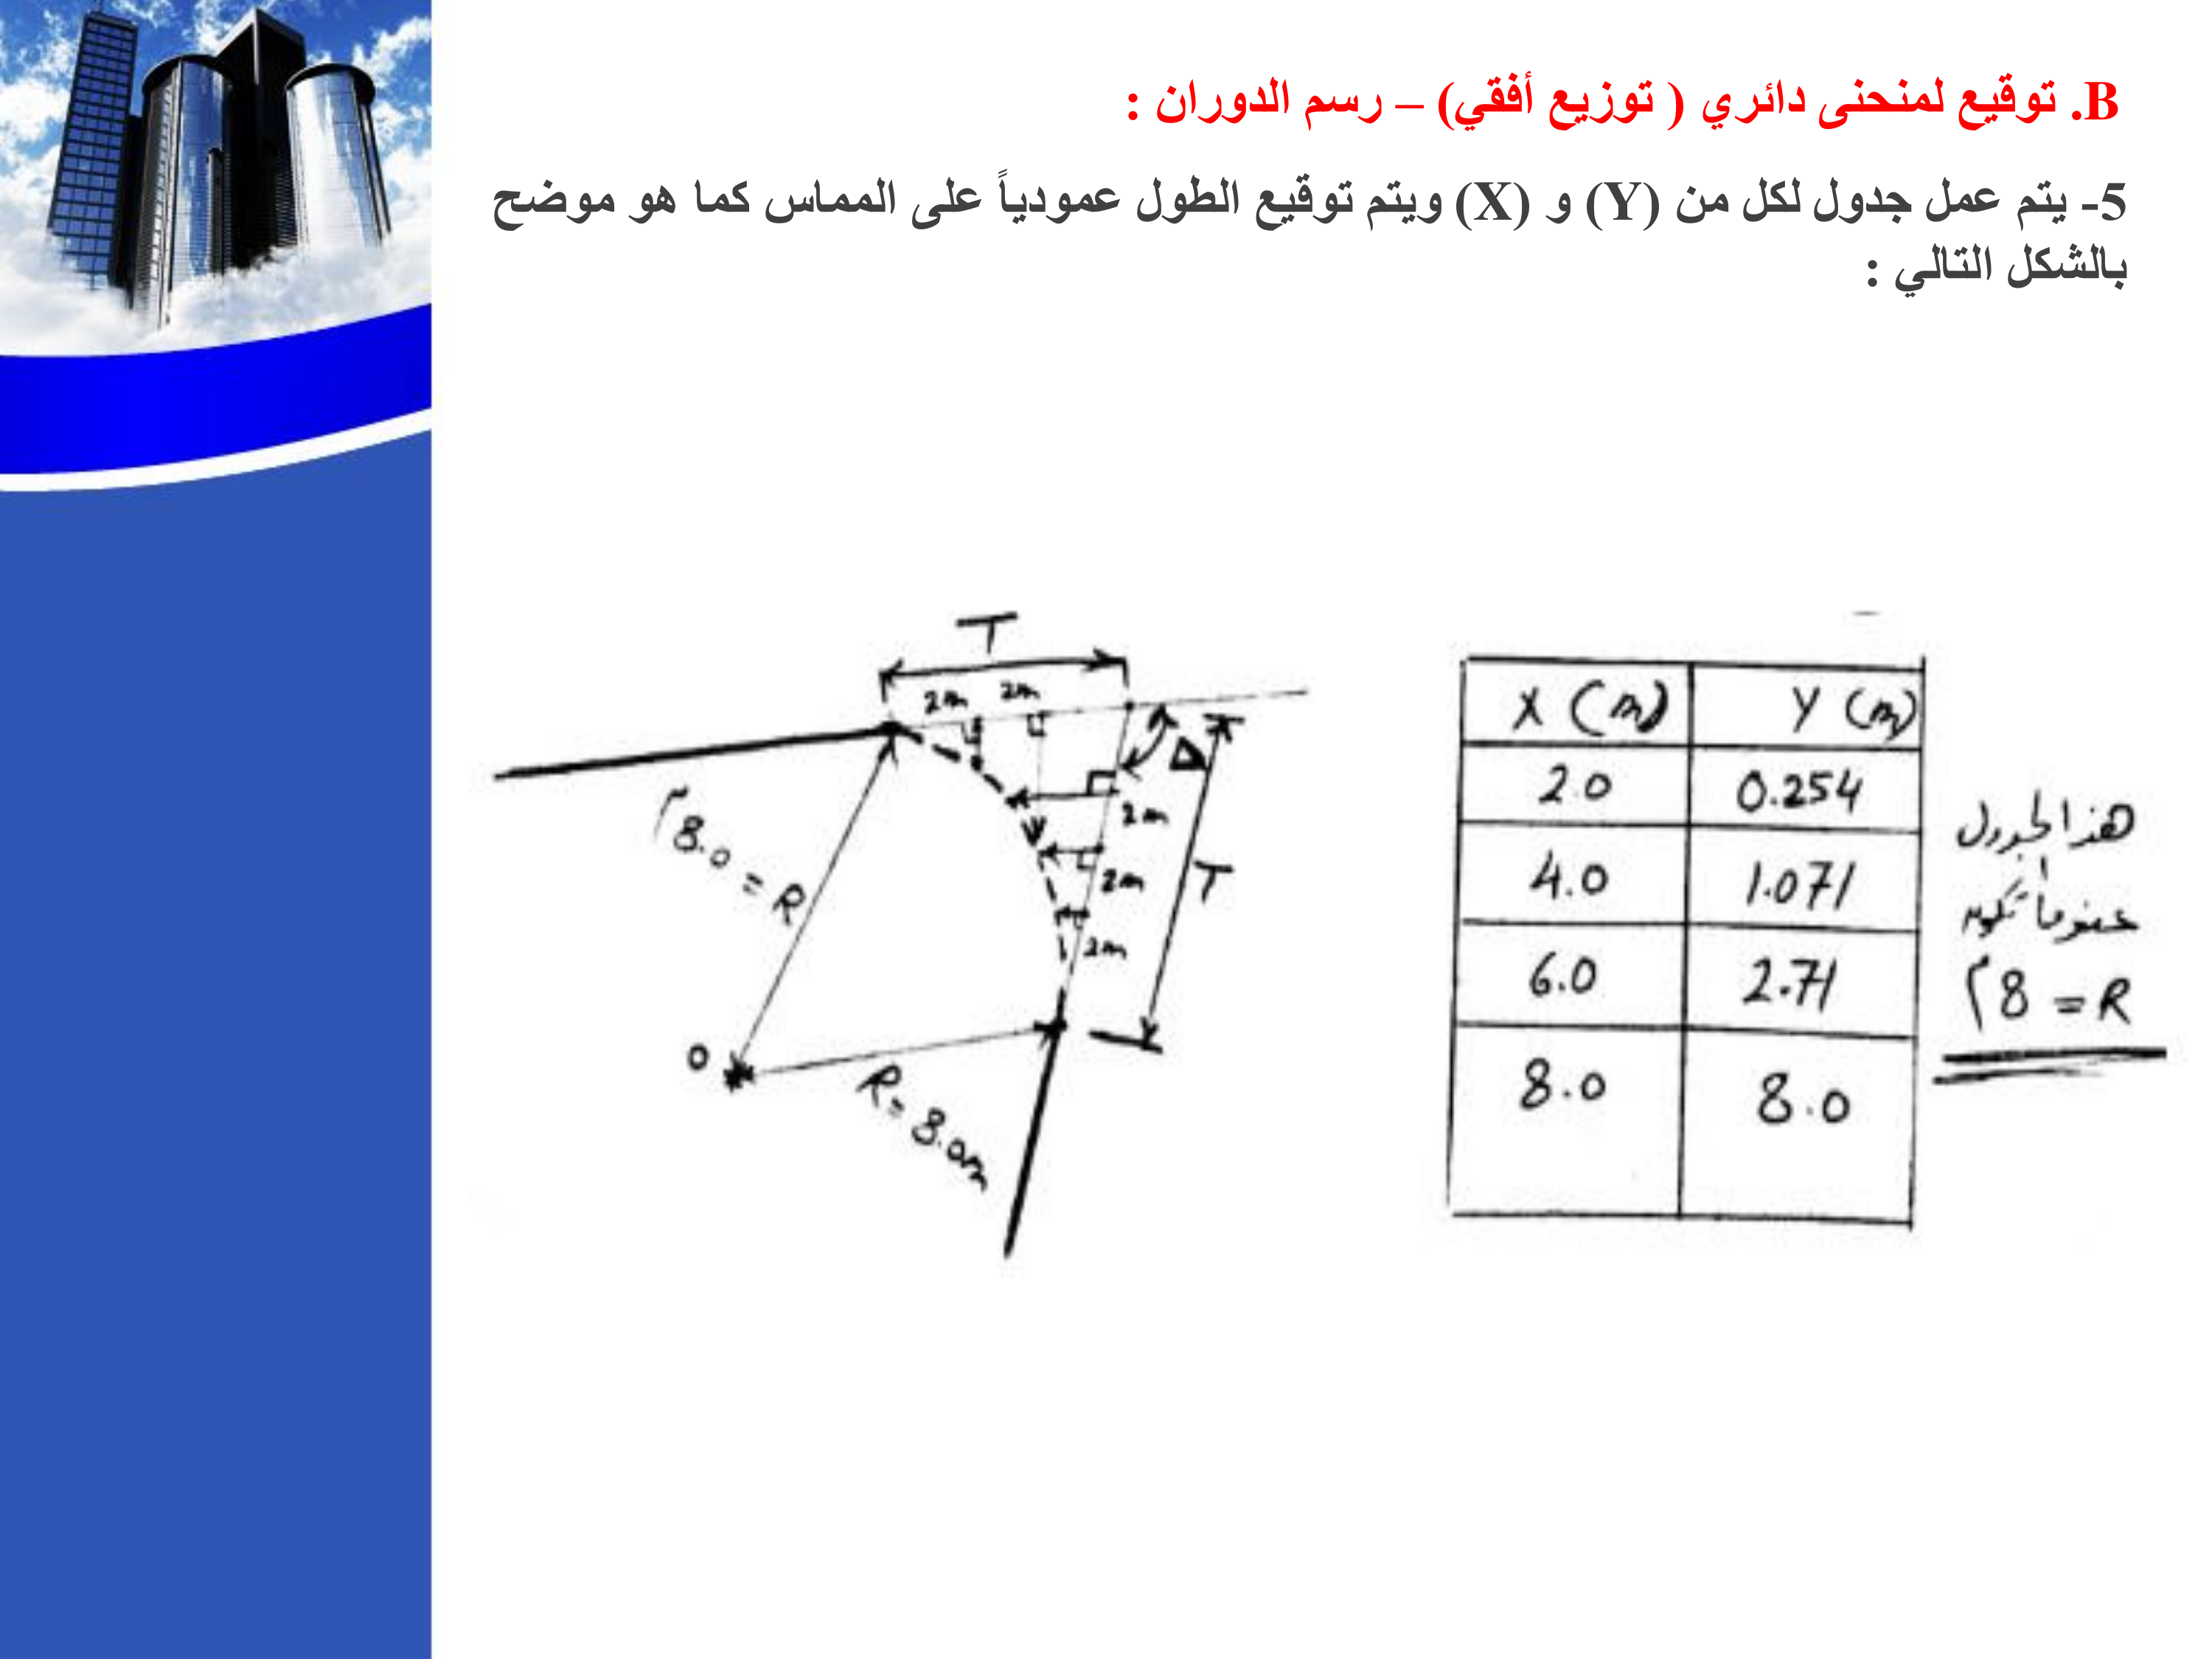 B. توقيع لمنحنى دائري ( توزيع أفقي) – رسم الدوران :
5- يتم عمل جدول لكل من (Y) و (X) ويتم توقيع الطول عمودياً على المماس كما هو موضح
بالشكل التالي :
T
2m 2m
Δ
2m
T
2m
2m
8.0 = R م
O
R = 8.0m
X (m) Y (m)
2.0 0.254
4.0 1.071
6.0 2.71
8.0 8.0
هذا الجدول
عندما تكون
R = 8 م